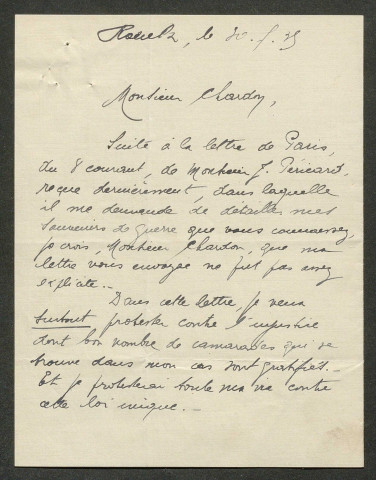 le 20.5.35
Monsieur Chardon,
Suite à la lettre de Paris,
du 8 courant, de Monsieur J. Péricard,
reçue dernièrement, dans laquelle
il me demande de détailler mes
souvenirs de guerre que vous connaissez,
je crois, Monsieur Chardon, que ma
lettre vous envoyée ne fut pas assez
explicite. _
Dans cette lettre, je veux
surtout protester contre l'injustice
dont bon nombre de camarades qui se
trouve dans mon cas sont gratifiés. _
Et je protesterai toute ma vie contre
cette loi inique. _